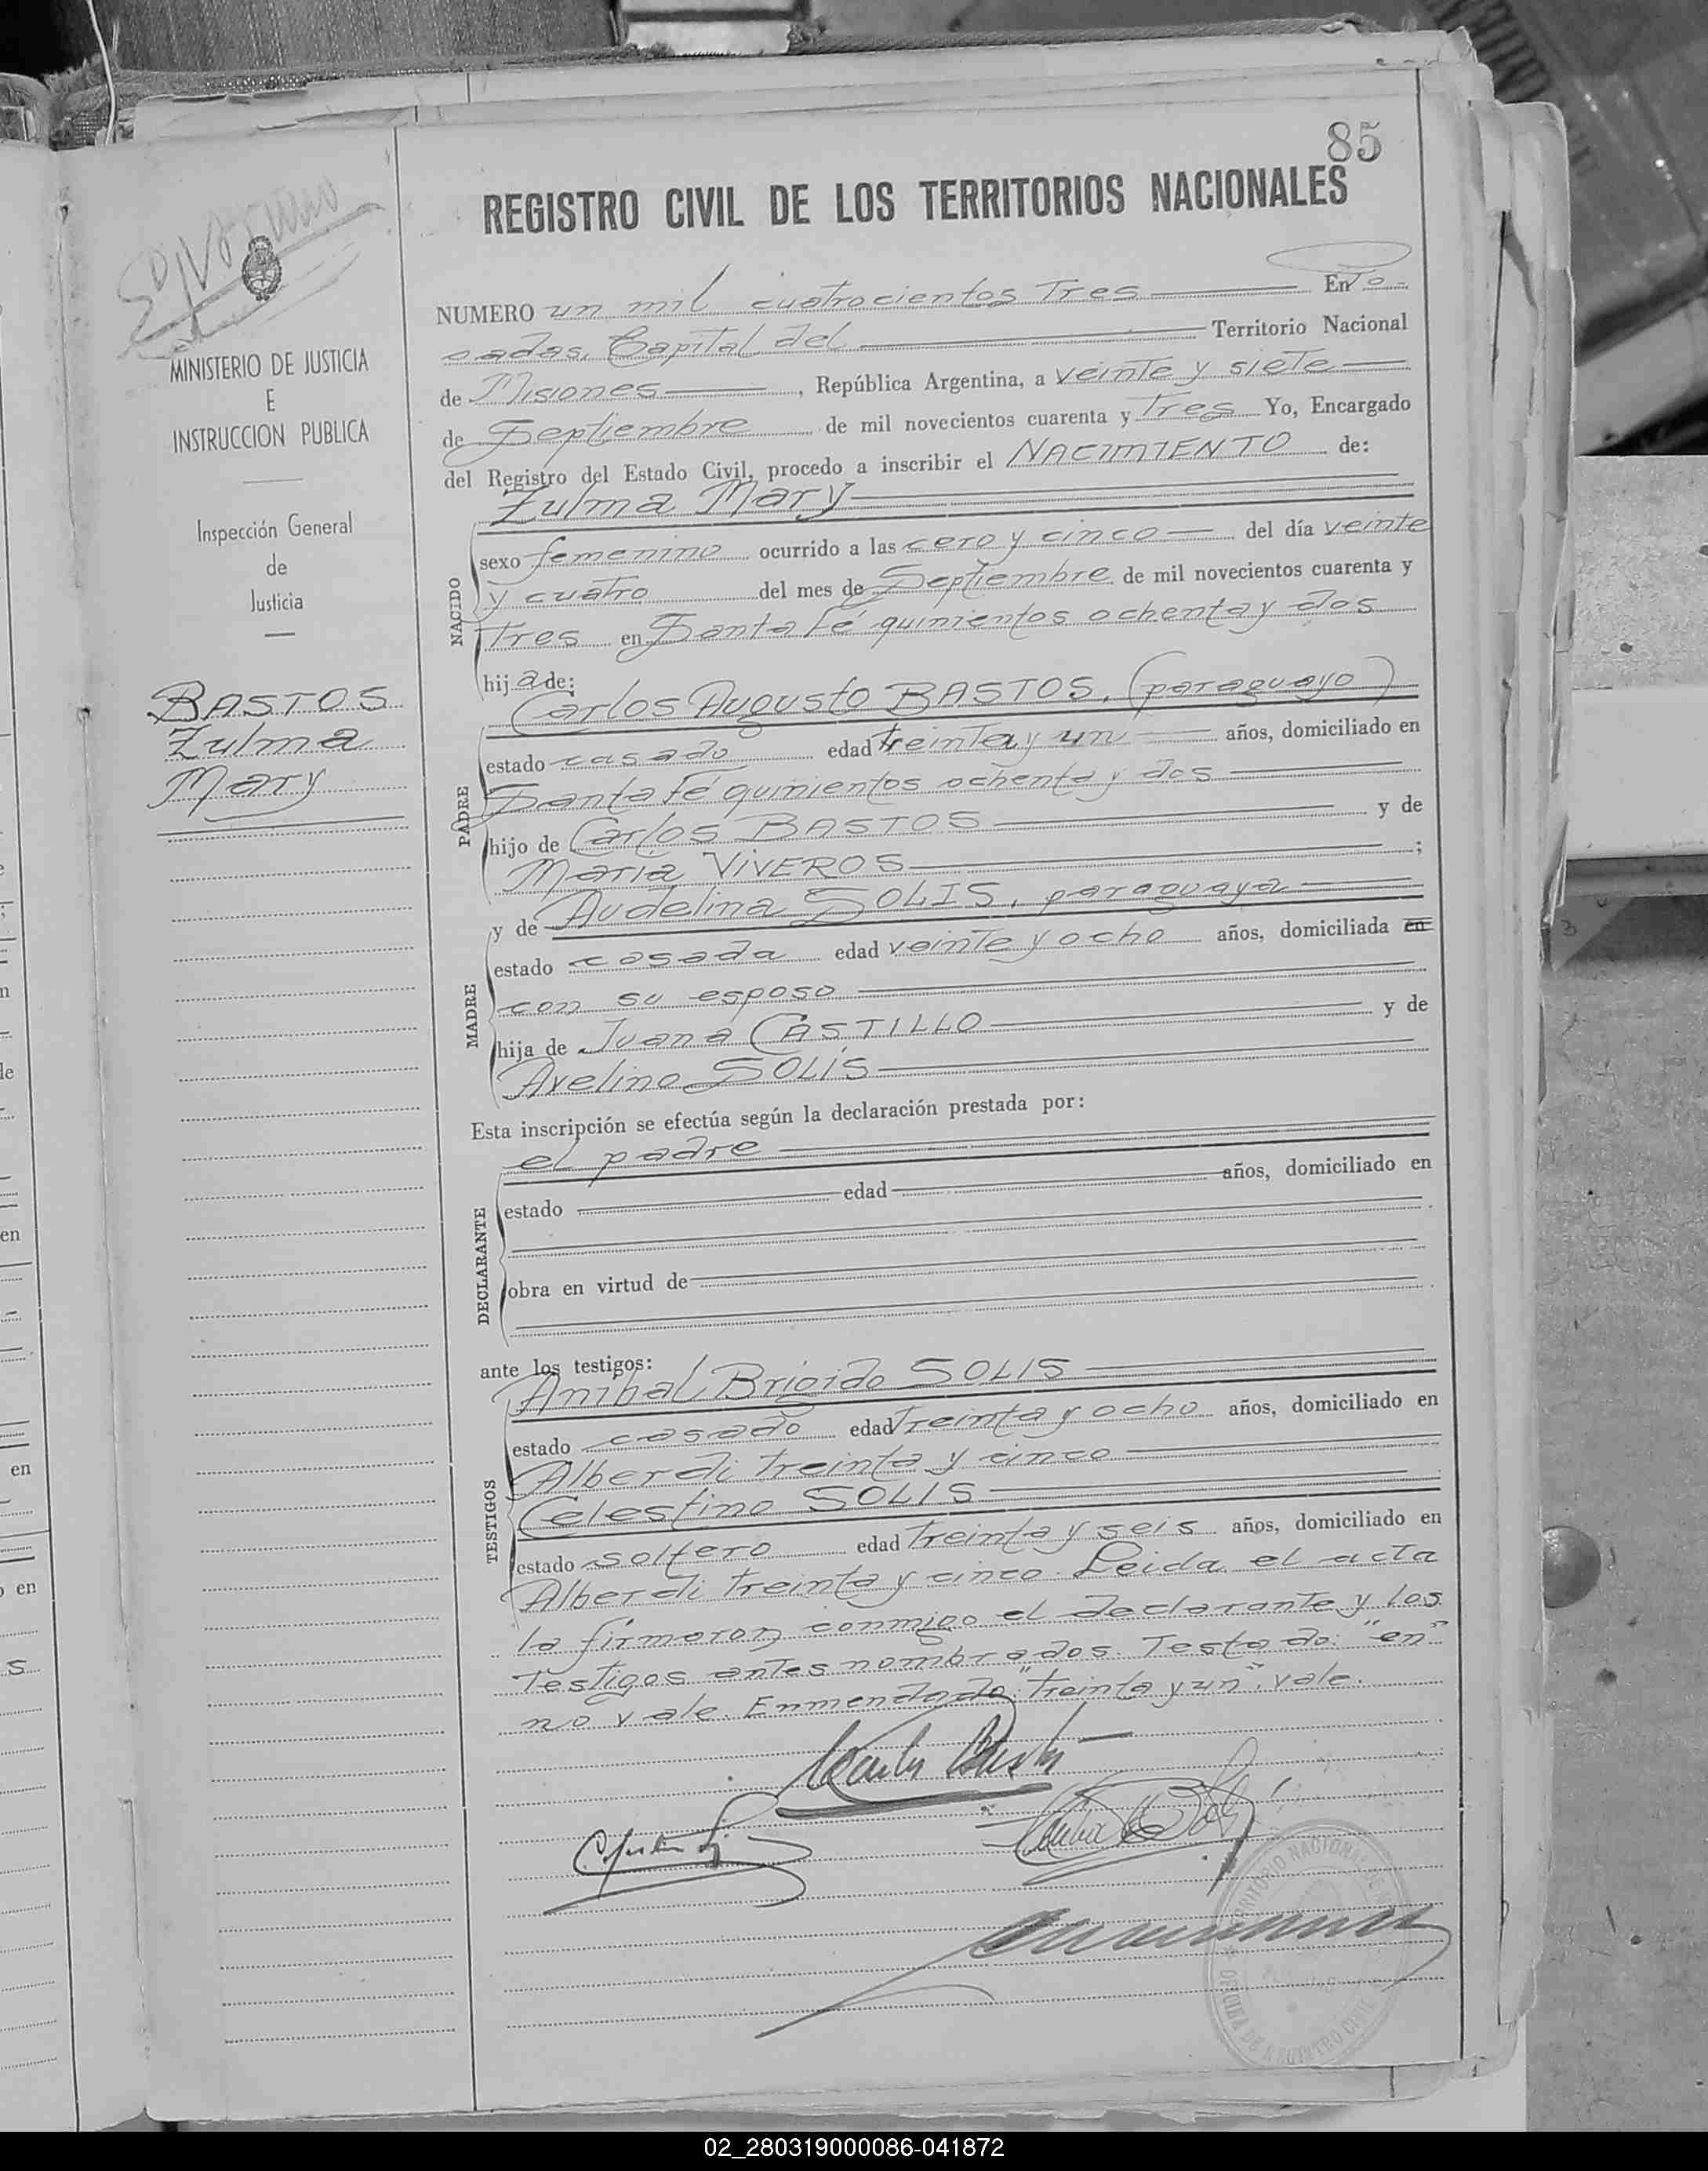 85
REGISTRO CIVIL DE LOS TERRITORIOS NACIONALES
MINISTERIO DE JUSTICIA
E
INSTRUCCION PUBLICA
Inspección General
de
Justicia
BASTOS
Zulma
Mary
NUMERO un mil cuatrocientos Tres En Po-
sadas, Capital del Territorio Nacional
de Misiones, República Argentina, a veinte y siete
de Septiembre de mil novecientos cuarenta y Tres Yo, Encargado
del Registro del Estado Civil, procedo a inscribir el NACIMIENTO de:
Zulma Mary
NACIDO
sexo femenino ocurrido a las cero y cinco del día veinte
y cuatro del mes de Septiembre de mil novecientos cuarenta y
Tres en Santa Fé quinientos ochenta y dos
hij a de:
Carlos Augusto BASTOS, (paraguayo)
PADRE
estado casado edad treinta y un años, domiciliado en
Santa Fé quinientos ochenta y dos
hijo de Carlos BASTOS y de
Maria VIVEROS ;
y de Audelina SOLIS, paraguaya
MADRE
estado casada edad veinte y ocho años, domiciliada en
con su esposo
hija de Juana CASTILLO y de
Avelino SOLÍS
Esta inscripción se efectúa según la declaración prestada por:
el padre
DECLARANTE
estado edad años, domiciliado en
obra en virtud de
ante los testigos:
Anibal Brigido SOLIS
TESTIGOS
estado casado edad Treinta y ocho años, domiciliado en
Alberdi treinta y cinco
Celestino SOLIS
estado soltero edad Treinta y seis años, domiciliado en
Alberdi treinta y cinco. Leida el acta
la firmaron conmigo el declarante y los
Testigos antes nombrados. Testado: "en"
no vale. Enmendado: "treinta y un", vale.
02_280319000086-041872